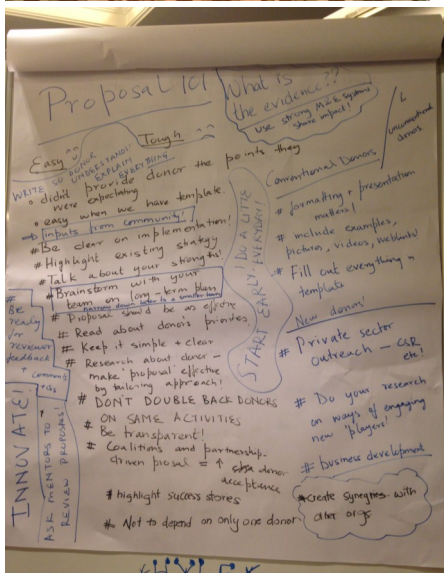 Proposal 101
What is
the evidence??
use strong M&E systems
share impact!
Easy
Tough
WRITE SO DONOR
UNDERSTANDS!
EXPLAIN
EVERYTHING
• didn't provide donor the points they
were expecting
• easy when we have template.
→ inputs from community!
# Be clear on implementation!
# Highlight existing strategy
# Talk about your strengths!
# Brainstorm with your
team on long-term plan
narrow down later to a smaller team
# proposal should be as effective
# Read about donor's priorities
# Keep it simple + clear
# Research about donor –
make 'proposal' effective
by tailoring approach!
# DON'T DOUBLE BACK DONORS
ON SAME ACTIVITIES
# Be transparent!
# Coalitions and partnership.
driven = ↑ donor
acceptance
# highlight success stores
# Not to depend on only one donor
START EARLY! DO A LITTLE
EVERYDAY!
unconventional
donors
Conventional Donors
# formatting + presentation
matters!
# include examples,
pictures, videos, weblinks!
# Fill out everything in
template
New donor
# Private sector
outreach – CSR
etc!
# Do your research
on ways of engaging
new 'players'!
# business development
* create synergies with
other orgs
# Be
ready
for
reviewer
feedback
+ comments
+ Qs
INNOVATE!
ASK MENTORS TO
REVIEW PROPOSALS